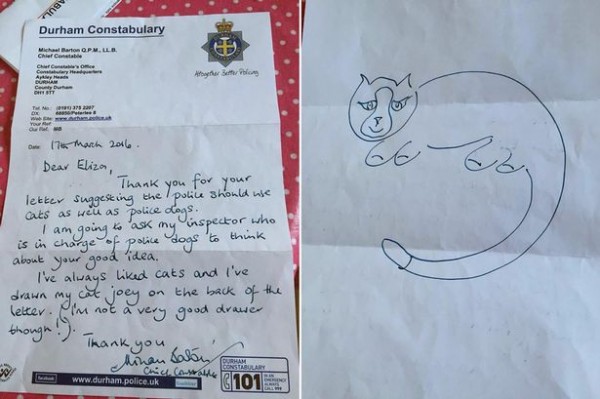 Durham Constabulary
Michael Barton Q.P.M., LL.B.
Chief Constable
Chief Constable's Office
Constabulary Headquarters
Aykley Heads
DURHAM
County Durham
DH1 5TT
Altogether Better Policing
Tel No: (0191) 375 2207
DX:
Web Site: www.durham.police.uk
Your Ref:
Our Ref: MB
Date: 17th March 2016.
Dear Eliza,
Thank you for your
letter suggesting the police should use
cats as well as police dogs.
I am going to ask my inspector who
is in charge of police dogs to think
about your good idea.
I've always liked cats and I've
drawn my cat joey on the back of the
letter. (I'm not a very good drawer
though!).
Thank you
Michael Barton
Chief Constable
facebook
www.durham.police.uk
DURHAM
CONSTABULARY
101
IN AN
EMERGENCY
ALWAYS
CALL 999